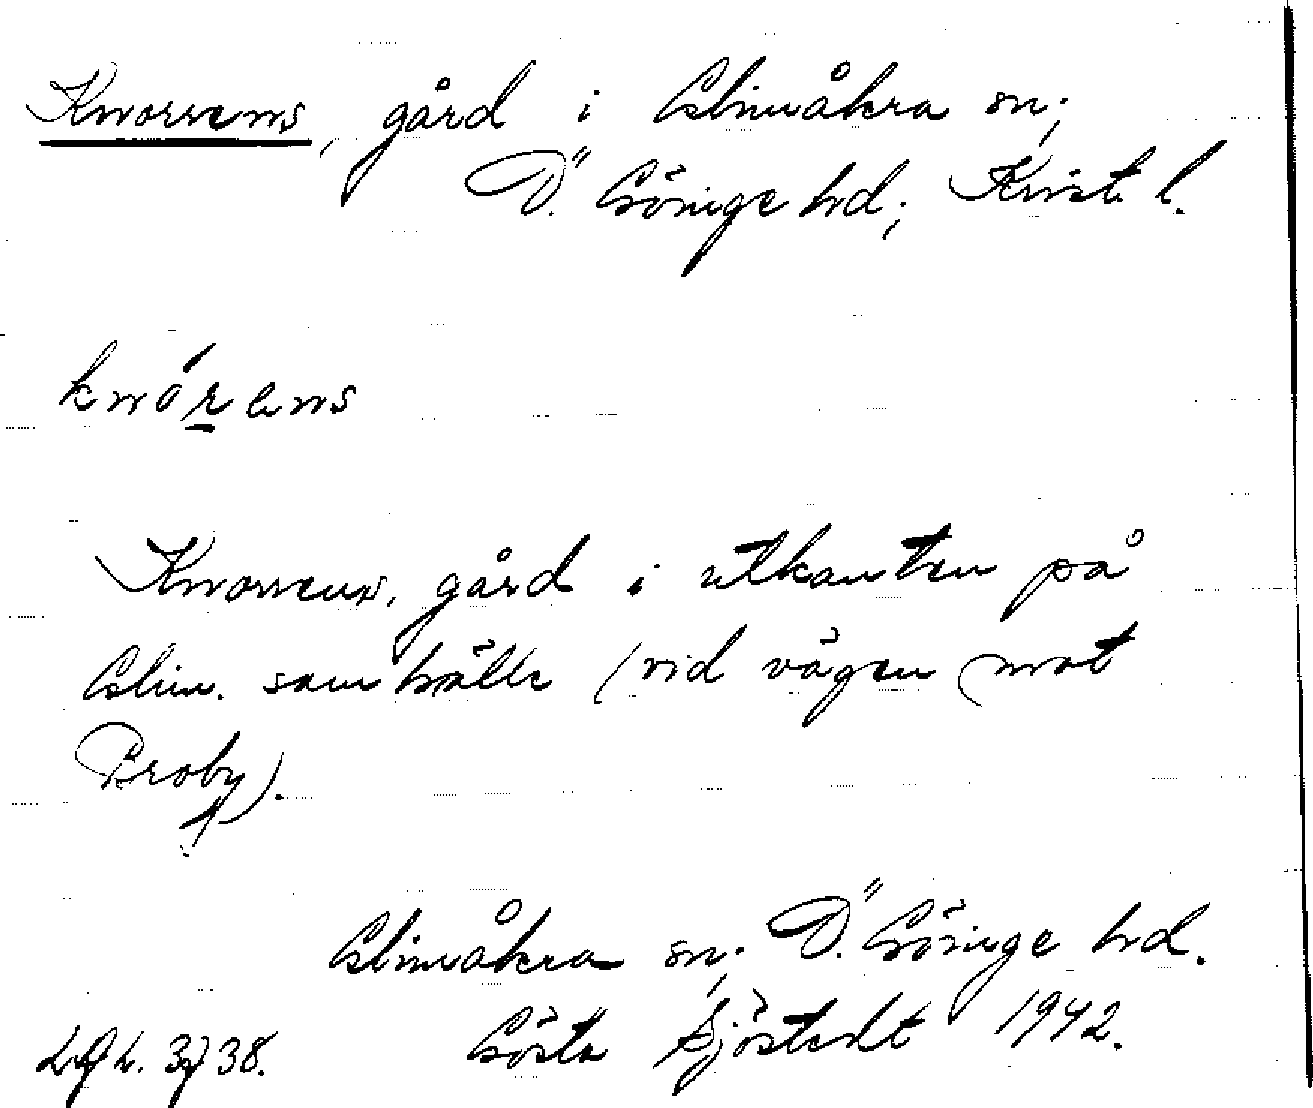 Knorrens, gård i Glimåkra sn;
Ö. Göinge hd; Krist. l.
knórens
Knorrens, gård i utkanten på
Glim. samhälle (vid vägen mot
Broby).
Glimåkra sn; Ö. Göinge hd.
Gösta Sjöstedt 1942.